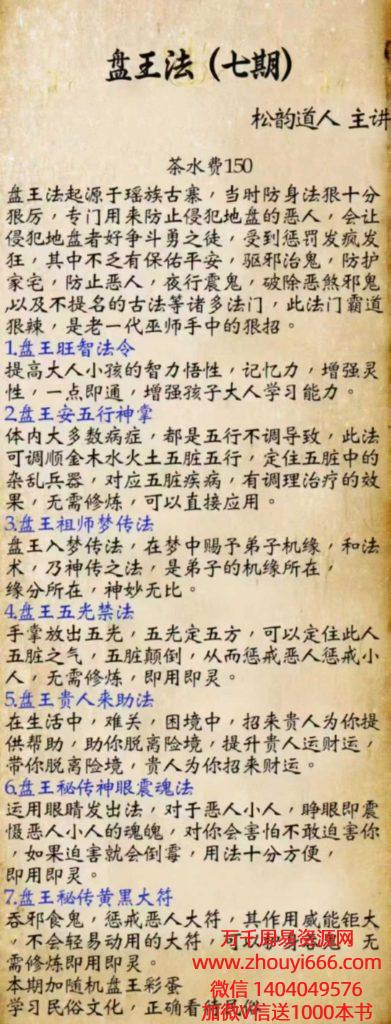 盘王法（七期）
松韵道人 主讲
茶水费150
盘王法起源于瑶族古寨，当时防身法狠十分
狠厉，专门用来防止侵犯地盘的恶人，会让
侵犯地盘者好争斗勇之徒，受到惩罚发疯发
狂，其中不乏有保佑平安，驱邪治鬼，防护
家宅，防止恶人，夜行震鬼，破除恶煞邪鬼
,以及不提名的古法等诸多法门，此法门霸道
狠辣，是老一代巫师手中的狠招。
1.盘王旺智法令
提高大人小孩的智力悟性，记忆力，增强灵
性，一点即通，增强孩子大人学习能力。
2.盘王安五行神掌
体内大多数病症，都是五行不调导致，此法
可调顺金木水火土五脏五行，定住五脏中的
杂乱兵器，对应五脏疾病，有调理治疗的效
果，无需修炼，可以直接应用。
3.盘王祖师梦传法
盘王入梦传法，在梦中赐予弟子机缘，和法
术，乃神传之法，是弟子的机缘所在，
缘分所在，神妙无比。
4.盘王五光禁法
手掌放出五光，五光定五方，可以定住此人
五脏之气，五脏颠倒，从而惩戒恶人惩戒小
人，无需修炼，即用即灵。
5.盘王贵人来助法
在生活中，难关，困境中，招来贵人为你提
供帮助，助你脱离险境，提升贵人运财运，
带你脱离险境，贵人为你招来财运。
6.盘王秘传神眼震魂法
运用眼睛发出法，对于恶人小人，睁眼即震
慑恶人小人的魂魄，对你会害怕不敢迫害你
，如果迫害就会倒霉，用法十分方便，
即用即灵。
7.盘王秘传黄黑大符
吞邪食鬼，惩戒恶人大符，其作用威能钜大
，不会轻易动用的大符，可以护身吞鬼，无
需修炼即用即灵。
本期加随机盘王彩蛋
学习民俗文化，正确看待民俗
万千周易资源网
www.zhouyi666.com
微信 1404049576
加微V信送1000本书